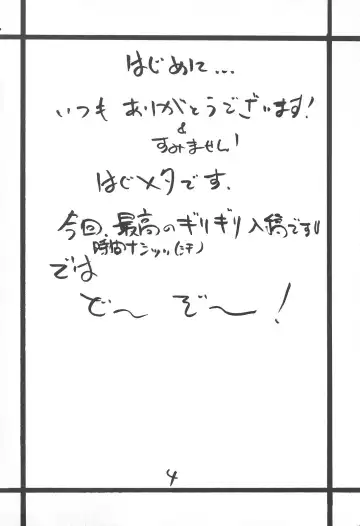 はじめに...
いつも ありがとうでざいます!
&
すみません!
はじメタです.
今回、最高のギリギリ入稿です!!
時間ナシッッ(汗)
では
ど〜 ぞ〜!
4